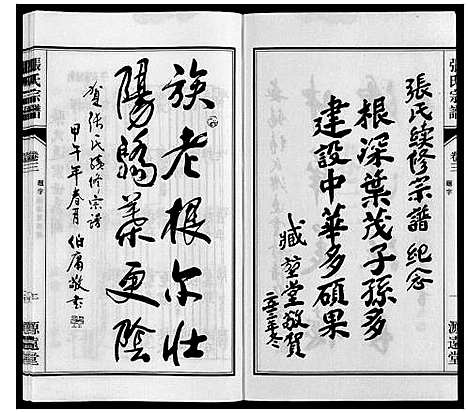 張氏宗譜
卷三
題字
源遠堂
張氏續修宗譜 紀念
根深葉茂子孫多
建設中華多碩果
堂敬賀
二〇一三年冬
族老根尔壮
陽驕葉更陰
賀張氏續修宗譜
甲午年春月 伯庸敬書
張氏宗譜
卷三
題字
源遠堂